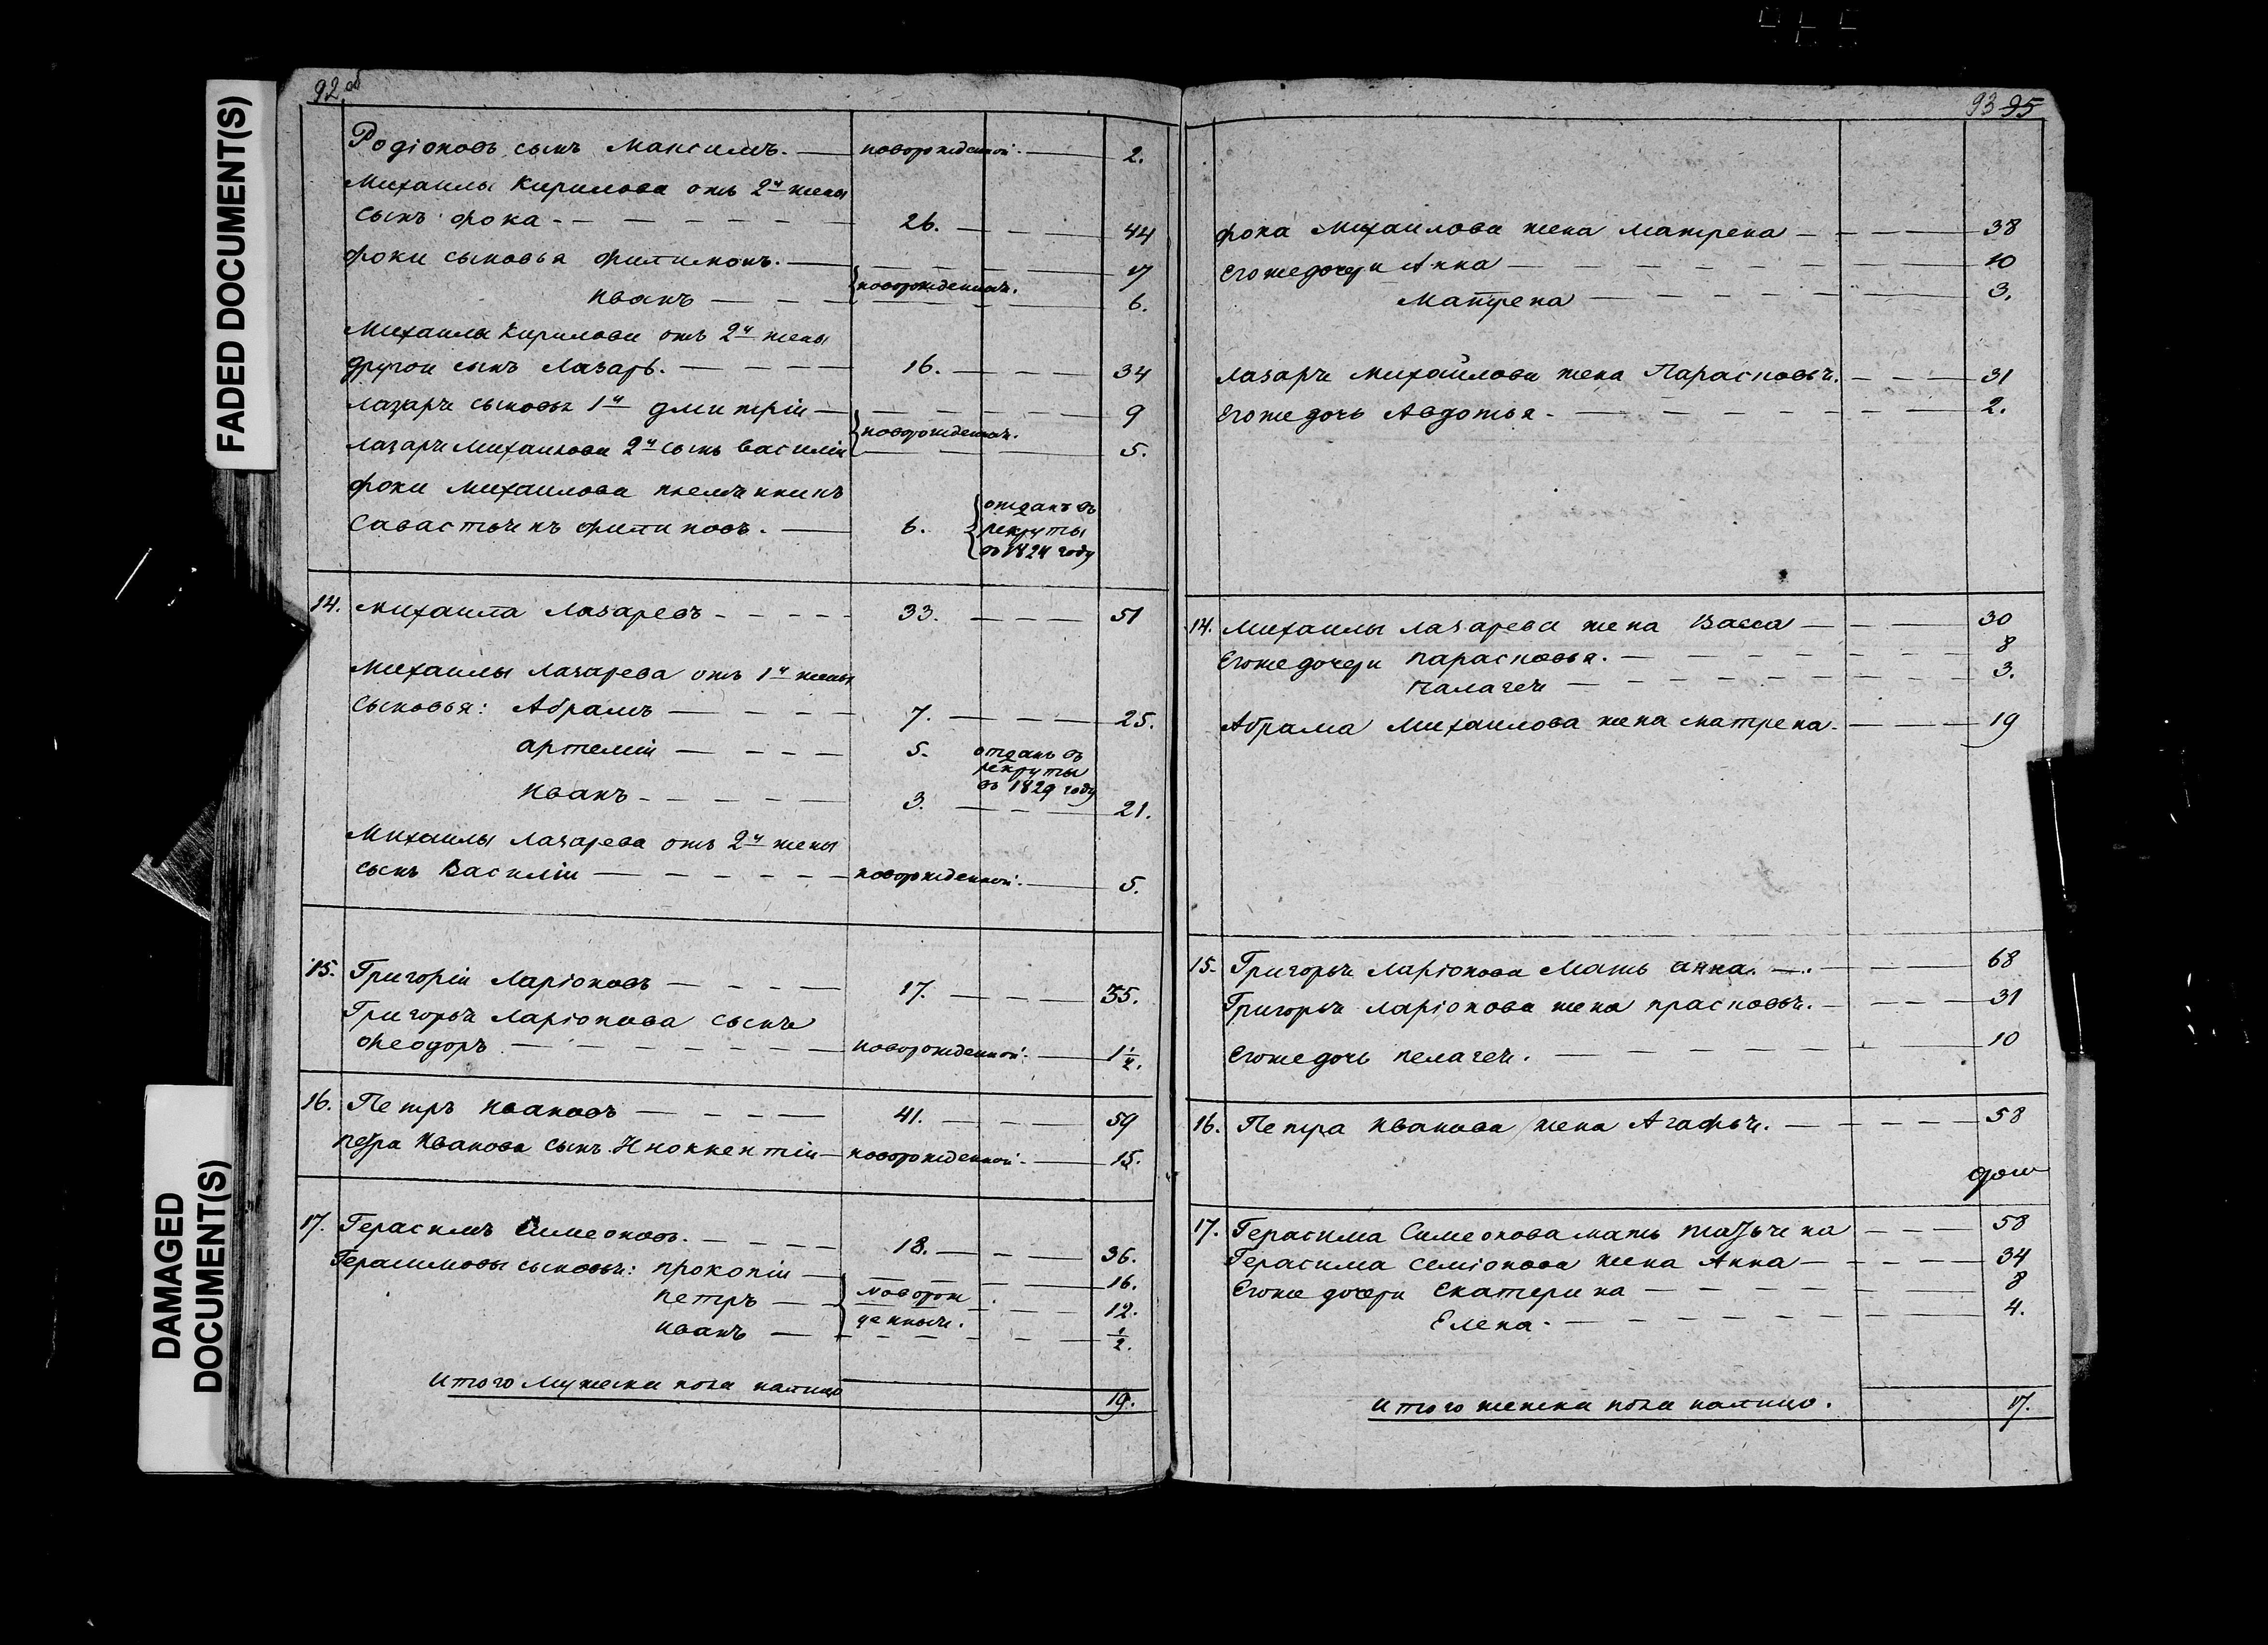 FADED DOCUMENT(S)
DAMAGED
DOCUMENT(S)
92 об
Родіоновъ сынъ Максимъ. — новорожденной. — 2.
Михаилы Кирилова отъ 2й жены
сынъ Фока — 26. — 44
Фоки сыновья Филимонъ. — 17
новорожденныя.
Иванъ — 6.
Михаилы Кирилова отъ 2й жены
другои сынъ Лазарь. — 16. — 34
Лазаря сыновья 1й Дмитрій — 9
новорожденныя.
Лазаря Михаилова 2й сынъ Василіи — 5.
Фоки Михаилова племянникъ
Савастьянъ Филиповъ. — 6. отданъ въ
рекруты
въ 1824 году
14. Михаила Лазаревъ — 33. — 51
Михаилы Лазарева отъ 1й жены
сыновья: Абрамъ — 7. — 25.
Артеміи — 5. отданъ въ
рекруты
въ 1829 году
Иванъ — 3. — 21.
Михаилы Лазарева отъ 2й жены
сынъ Василіи — новорожденной. — 5.
15. Григоріи Ларіоновъ — 17. — 35.
Григорья Ларіонова сынъ
Ѳеодоръ — новорожденной. — 1 1/2.
16. Петръ Ивановъ — 41. — 59
Петра Иванова сынъ Иноккентіи — новорожденной. — 15.
17. Герасимъ Симеоновъ. — 18. — 36.
Герасимовы сыновья: Прокопіи — 16.
Петръ — новорож — 12.
Иванъ — денныя. — 1/2.
Итого мужеска пола налицо 19.
93 95
Фока Михаилова жена Матрена — 38
Егоже дочери Анна — 10
Матрена — 3.
Лазаря Михайлова жена Парасковья. — 31
Егоже дочь Авдотья — 2.
14. Михаилы Лазарева жена Васса — 30
Егоже дочери Парасковья. — 8
Палагея — 3.
Абрама Михаилова жена Матрена — 19
15. Григорья Ларіонова мать Анна. — 68
Григорья Ларіонова жена Прасковья. — 31
Егоже дочь Пелагея. — 10
16. Петра Иванова жена Агафья. — 58
17. Герасима Симеонова мать Татьяна — 58
Герасима Семіонова жена Анна — 34
Егоже дочери Екатерина — 8
Елена — 4.
Итого женска пола налицо. 17.